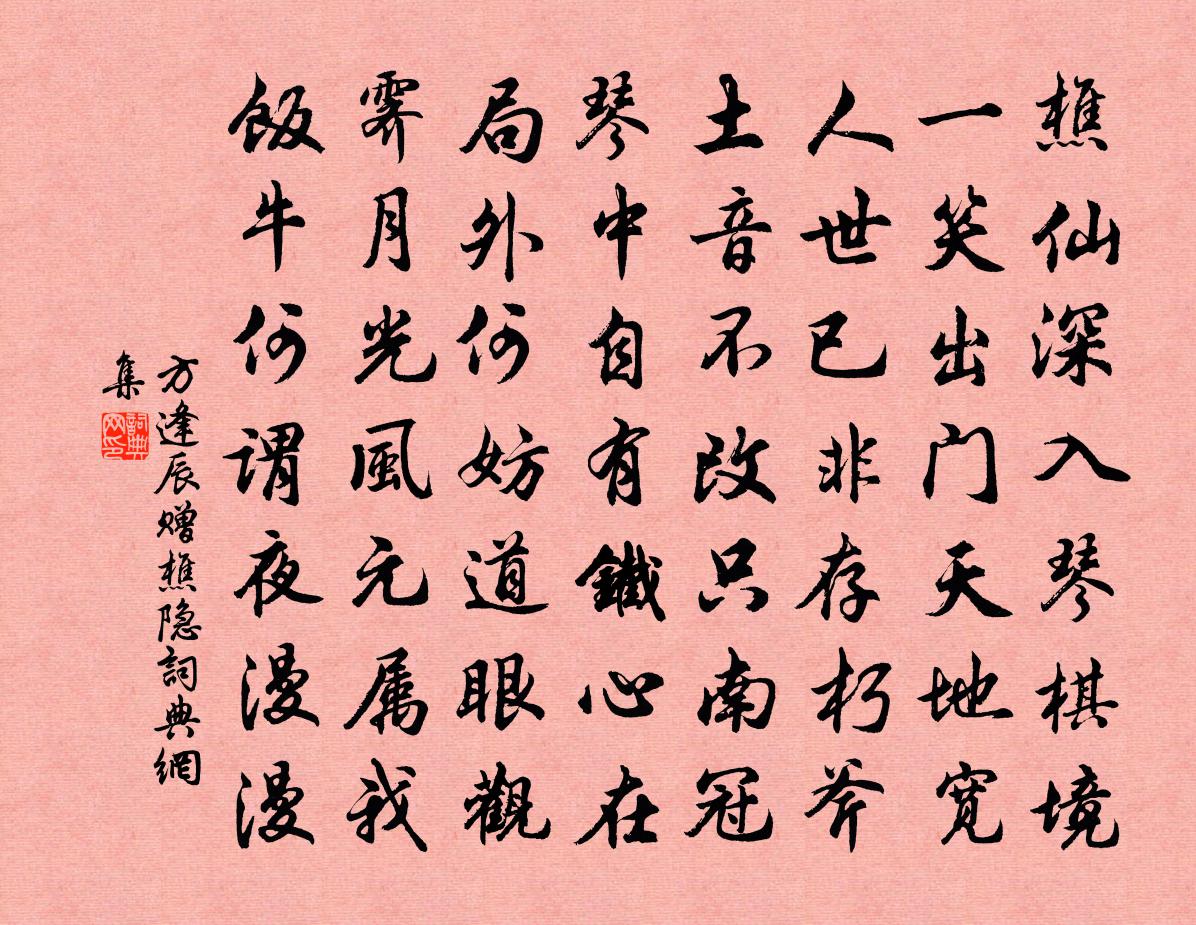 樵仙深入琴棋境
一笑出门天地寬
人世已非存朽斧
土音不改只南冠
琴中自有鐵心在
局外何妨道眼觀
霽月光風元属我
飯牛何谓夜漫漫
方逢辰赠樵隐詞典網
集
詞典
网印